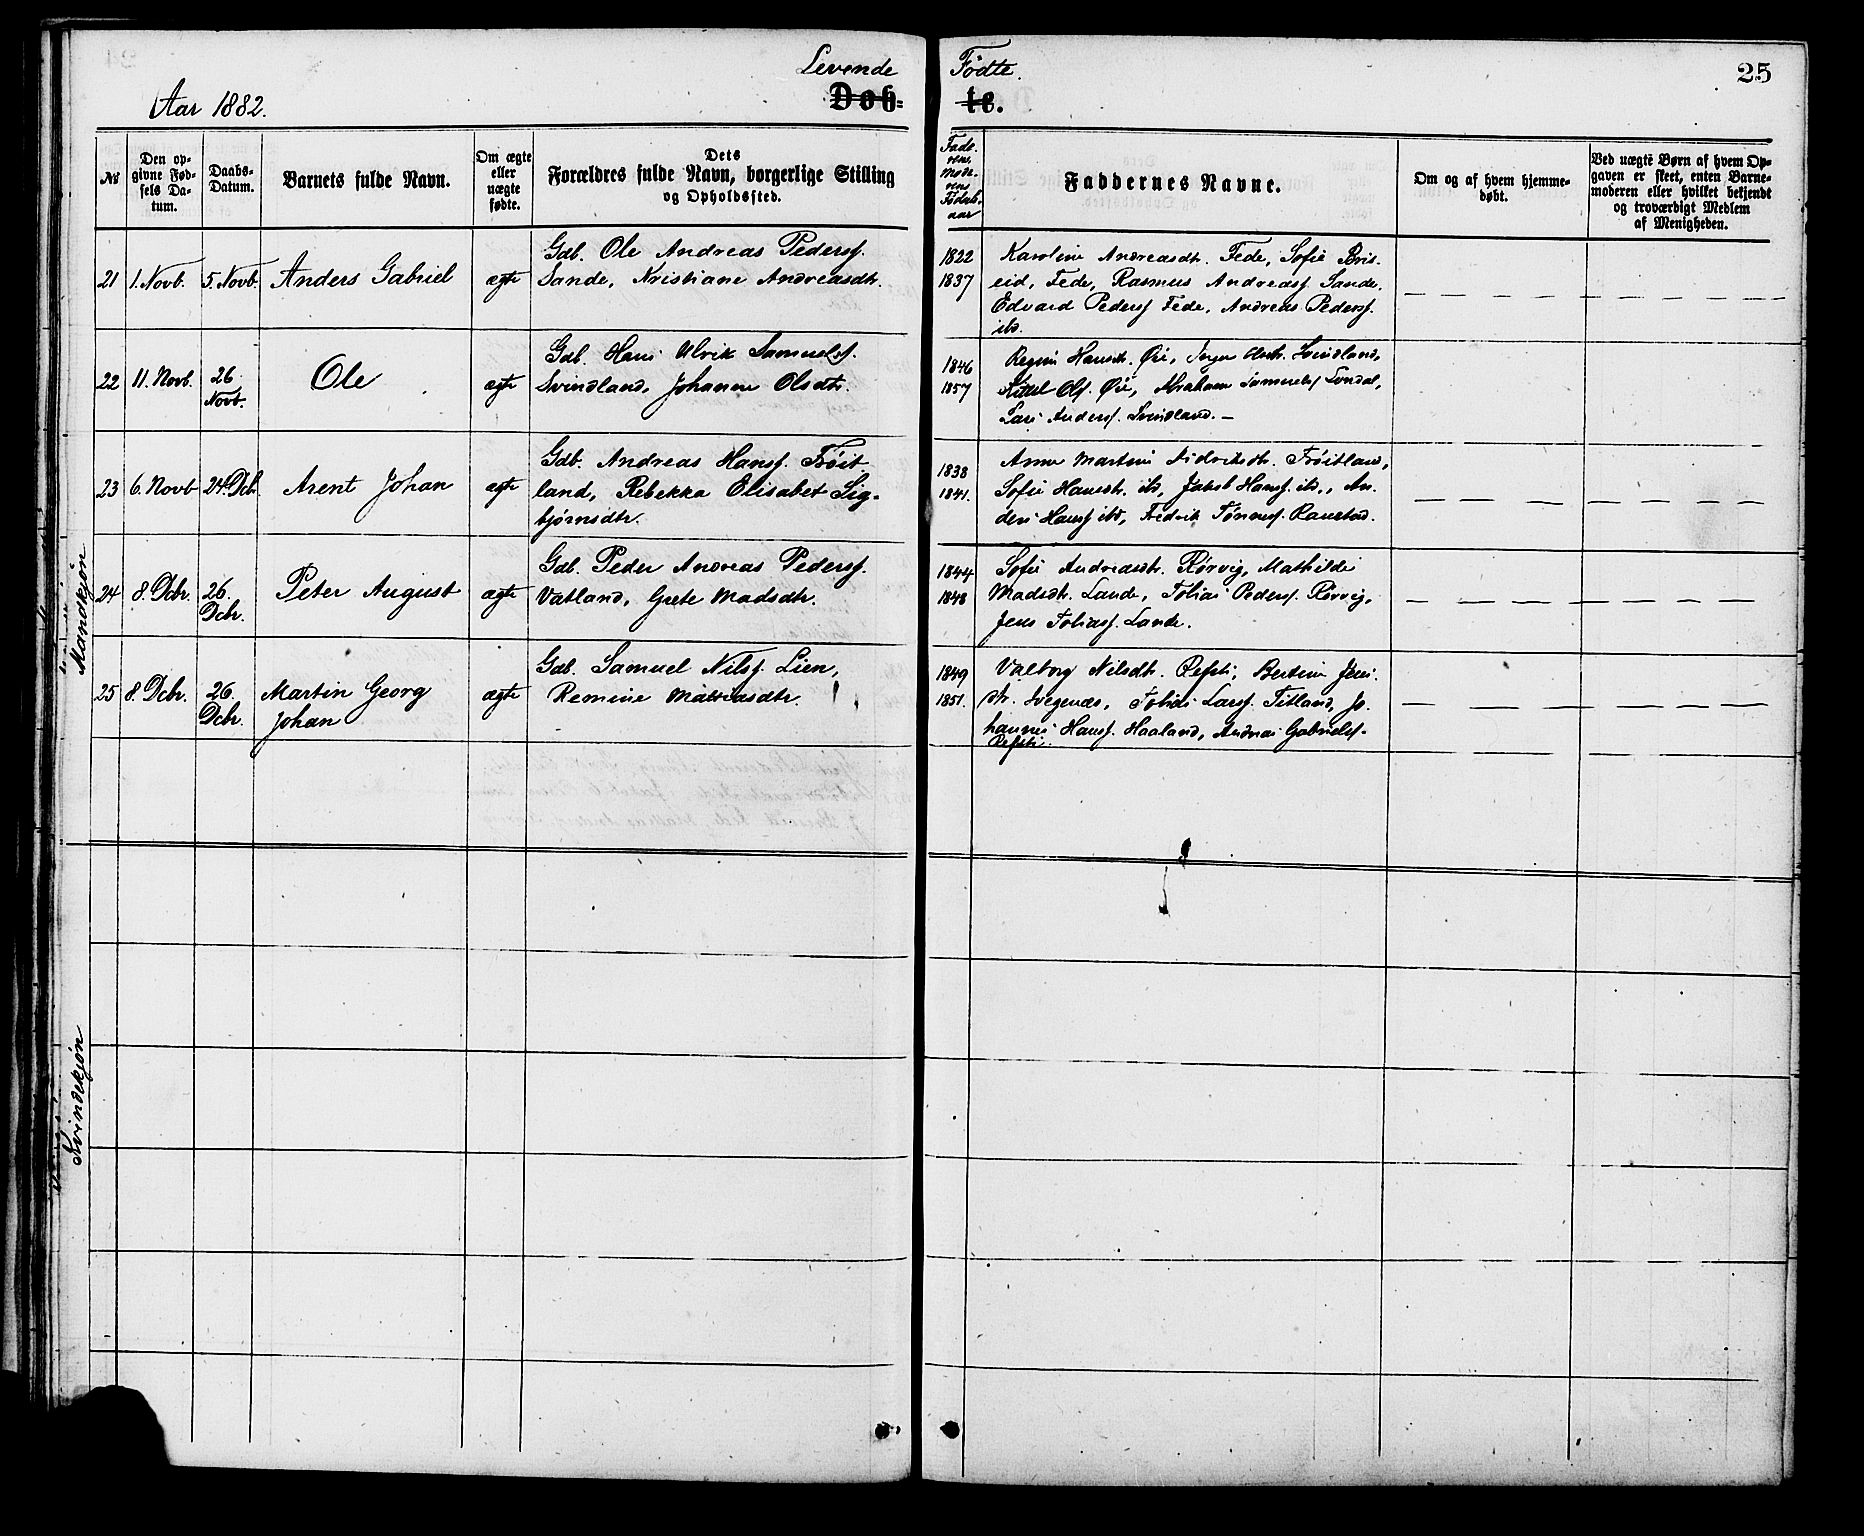 Levende Fødte.
25
Aar 1882.
Døb- te.
№
Den op-
givne Fød-
sels Da-
tum.
Daabs-
Datum.
Barnets fulde Navn.
Om ægte
eller
uægte
fødte.
Dets
Forældres fulde Navn, borgerlige Stilling
og Opholdssted.
Fade-
rens
Mode-
rens
Fødsels-
aar
Faddernes Navne.
Om og af hvem hjemme-
døbt.
Ved uægte Børn af hvem Op-
gaven er skeet, enten Barne-
moderen eller hvilket bekjendt
og troværdigt Medlem
af Menigheden.
Mandkjøn
21 1. Novb. 5. Novb. Anders Gabriel ægte
Gdb. Ole Andreas Peders.
Sande, Kristiane Andreasdtr.
1822
1837
Karoline Andreasdtr. Fede, Sofie Bris-
eid, Fede, Rasmus Andreas. Sande,
Edvard Peders. Fede, Andreas Peders.
ibd.
22 11. Novb. 26
Novb.
Ole ægte
Gdb. Hans Ulrik Samuels.
Svindland, Johanne Olsdtr.
1846
1857
Regine Hansdtr. Øie, Inger Olsdtr. Svindland,
Kittel Ols. Øie, Abraham Samuels. Londal,
Lars Anders. Svindland. —
23 6. Novb 24. Dcb. Arent Johan ægte
Gdb. Andreas Hans. Frøit
land, Rebekka Elisabet Sig-
bjørnsdtr.
1838
1841.
Anne Martine Fredriksdtr. Frøitland,
Sofie Hansdtr. ibd, Jakob Hans. ibd., An-
ders Hans. ibd, Fredrik Tønnes. Ranestad.
24 8. Dcbr. 26.
Dcbr.
Peter August ægte
Gdb. Peder Andreas Peders.
Vatland, Grete Madsdtr.
1844
1848
Sofie Andreasdtr. Rørvig, Mathilde
Madsdtr. Lande, Tobias Peders. Rørvig,
Jens Tobias. Lande.
25 8. Dcbr. 26.
Dcbr.
Martin Georg
Johan
ægte
Gdb. Samuel Nils. Lien,
Remine Mattiasdtr.
1849
1851.
Valborg Nilsdtr. Refsti, Bertine Jens-
dtr. Svegenes, Tobias Lars. Titland, Jo-
hannes Hans. Haaland, Andreas Gabriels.
Refsti.
Kvindekjøn